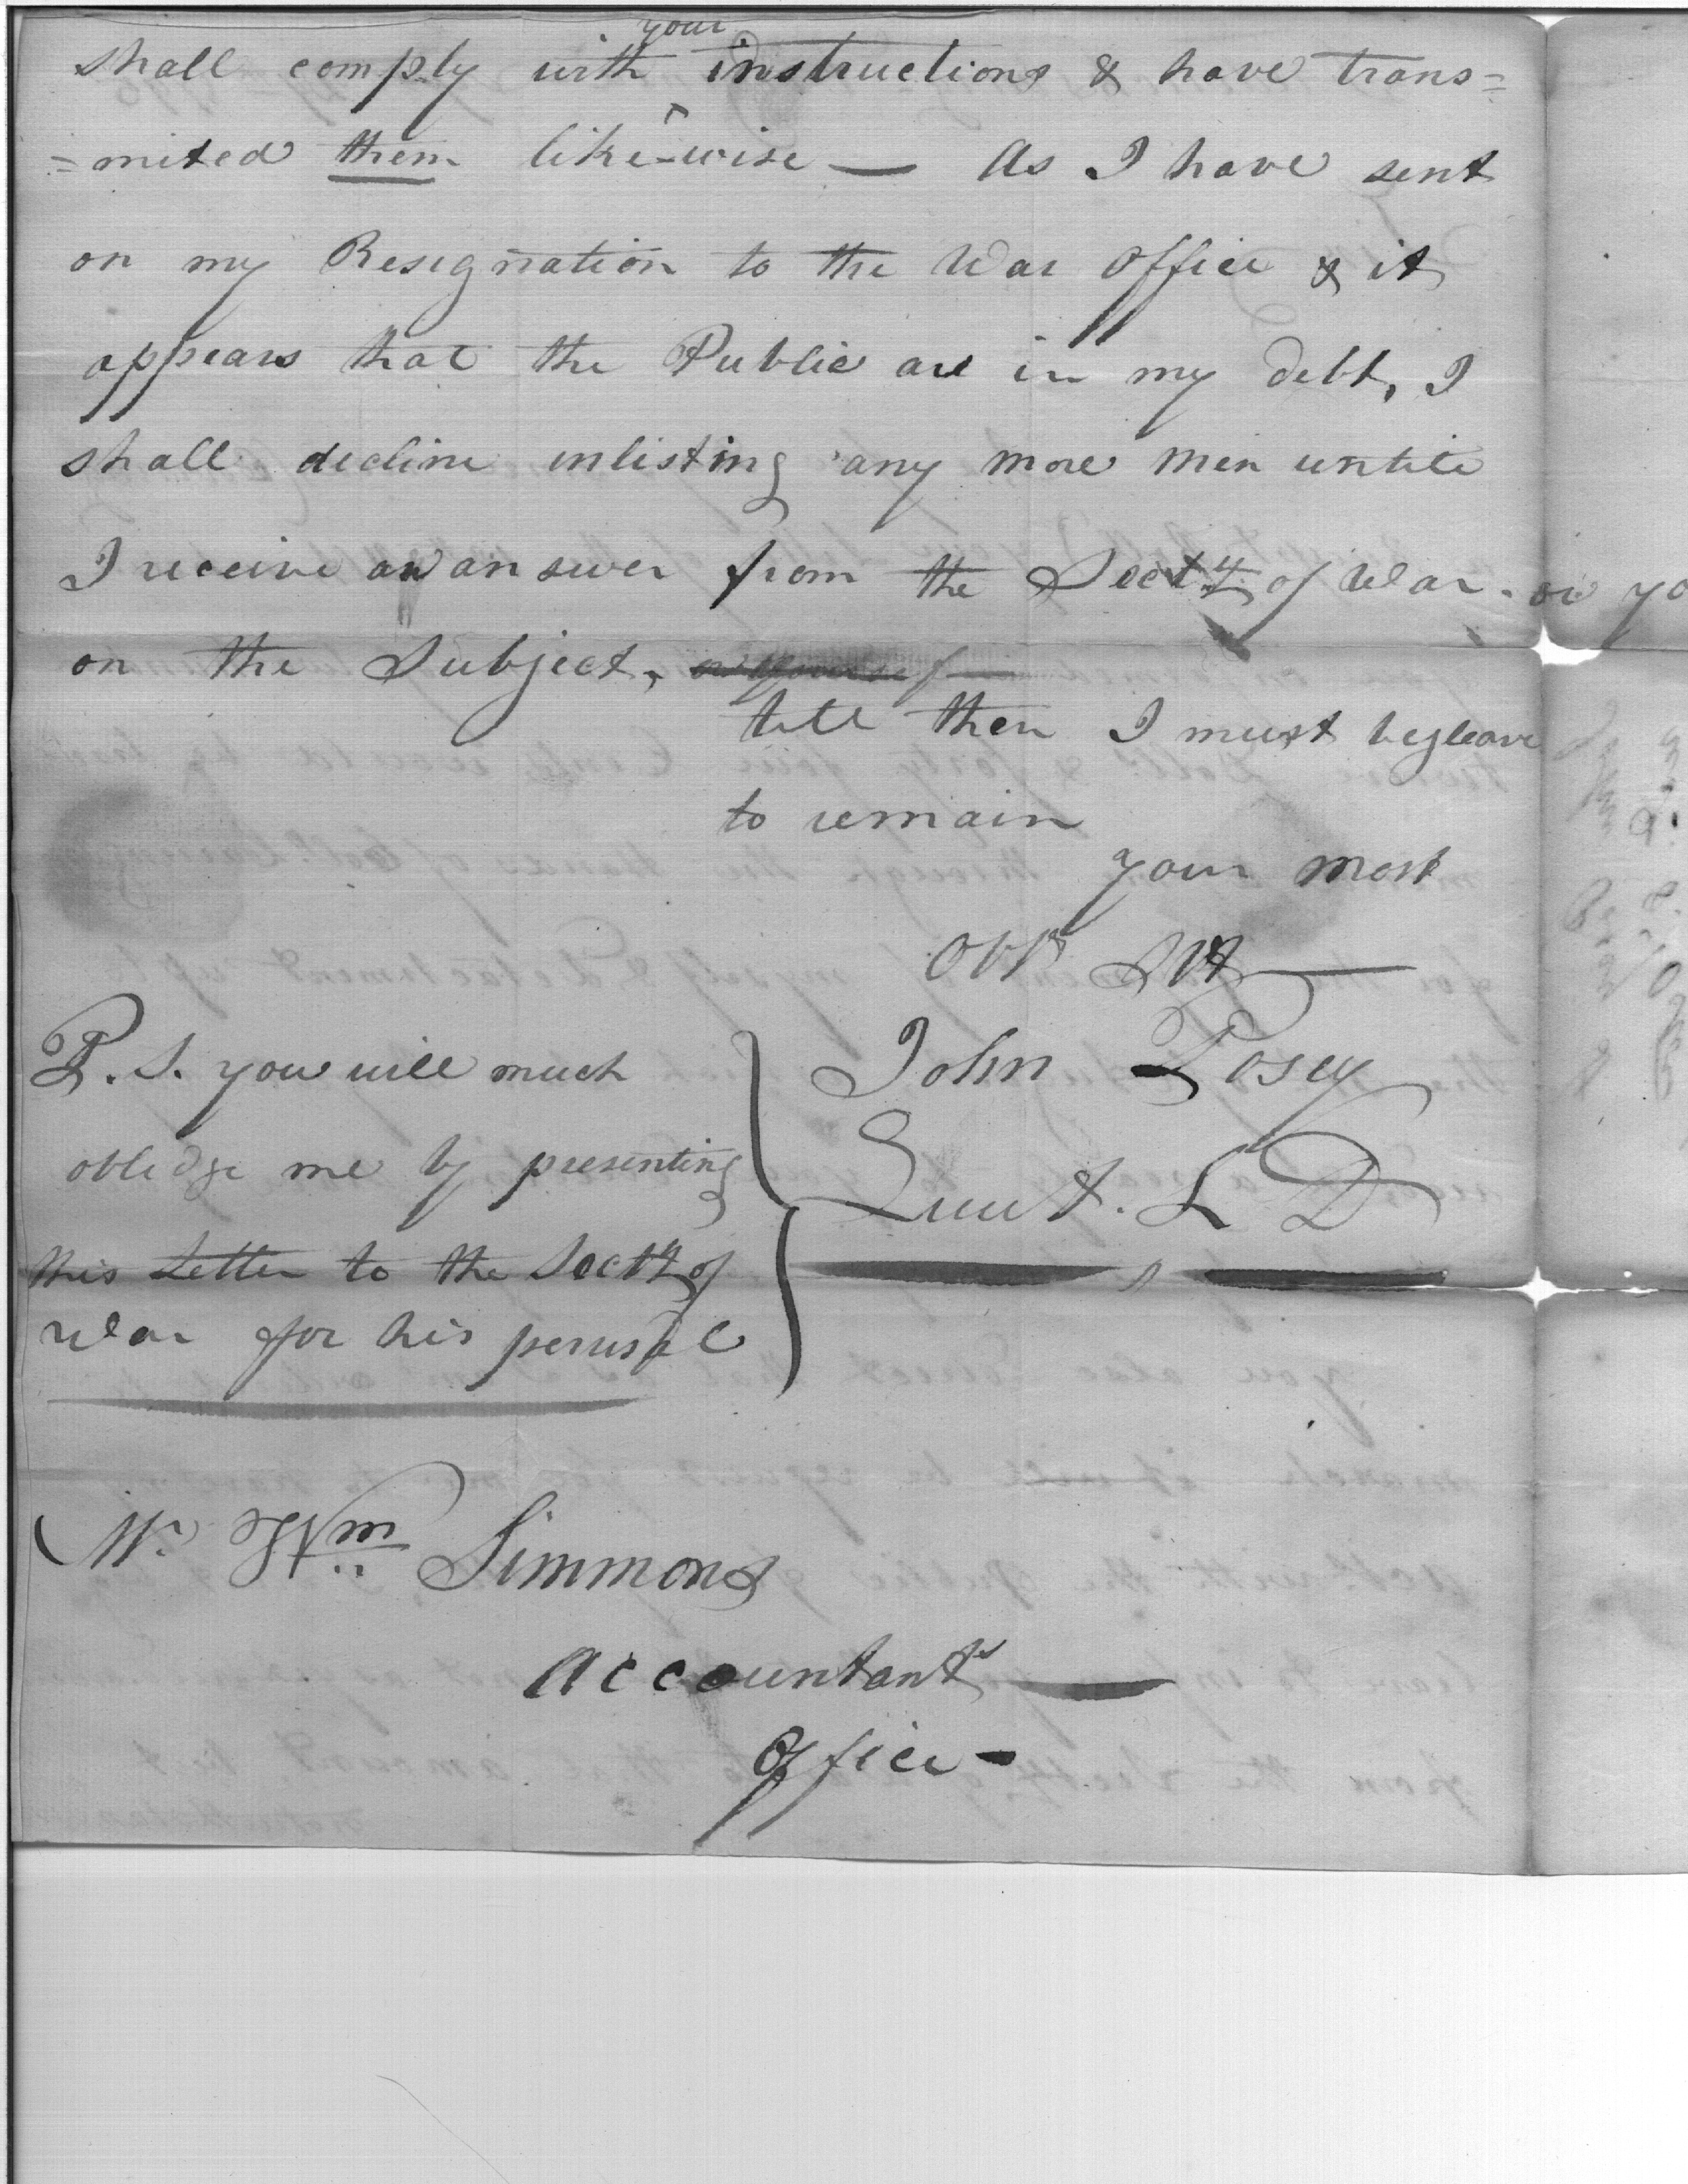 your
shall comply with instructions & have trans=
=mited them like-wise — As I have sent
on my Resignation to the War Office & it
appears that the Public are in my debt, I
shall decline inlisting any more men untill
I receive an answer from the Secty of War. or yo
on the Subject, or yourself
till then I must beg leave
to remain
your most
Obt Svt
John Posey
Lieut. L D
P. S. you will much
obledge me by presenting
this Letter to the Secty of
War for his perusal
Mr Wm Simmons
Accountants
Office